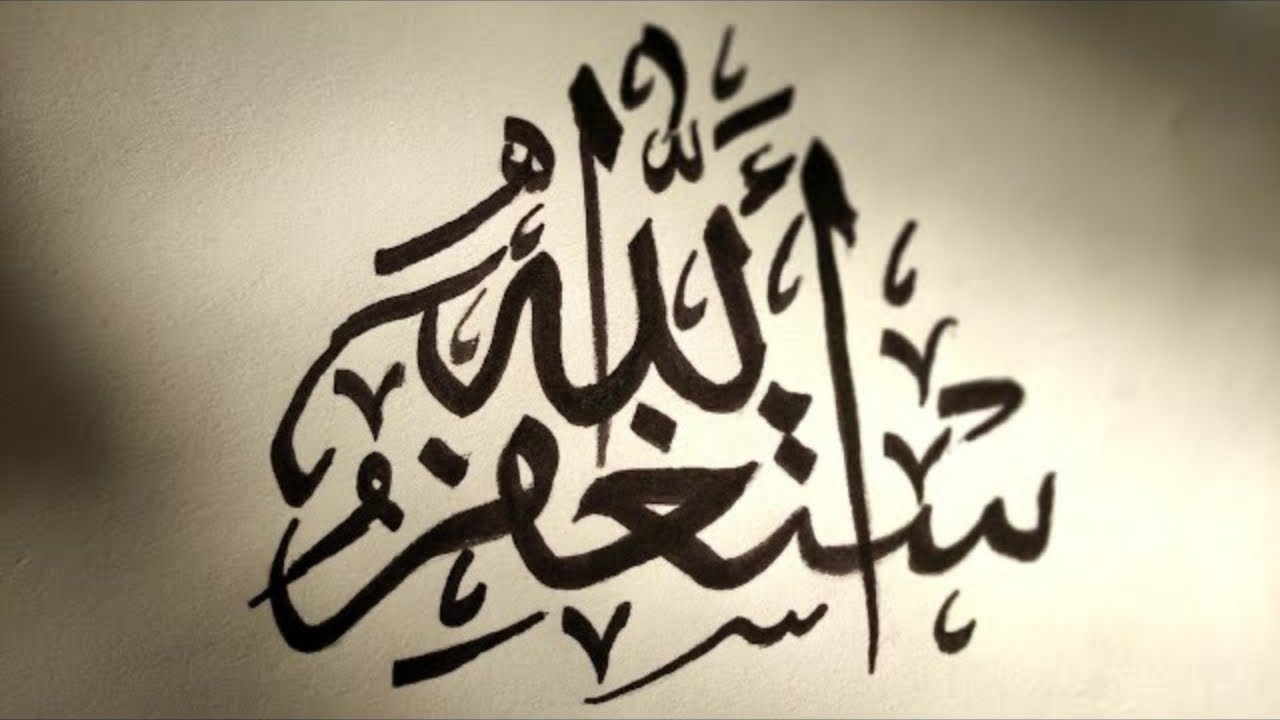 أَسْتَغْفِرُ اللّٰهَ